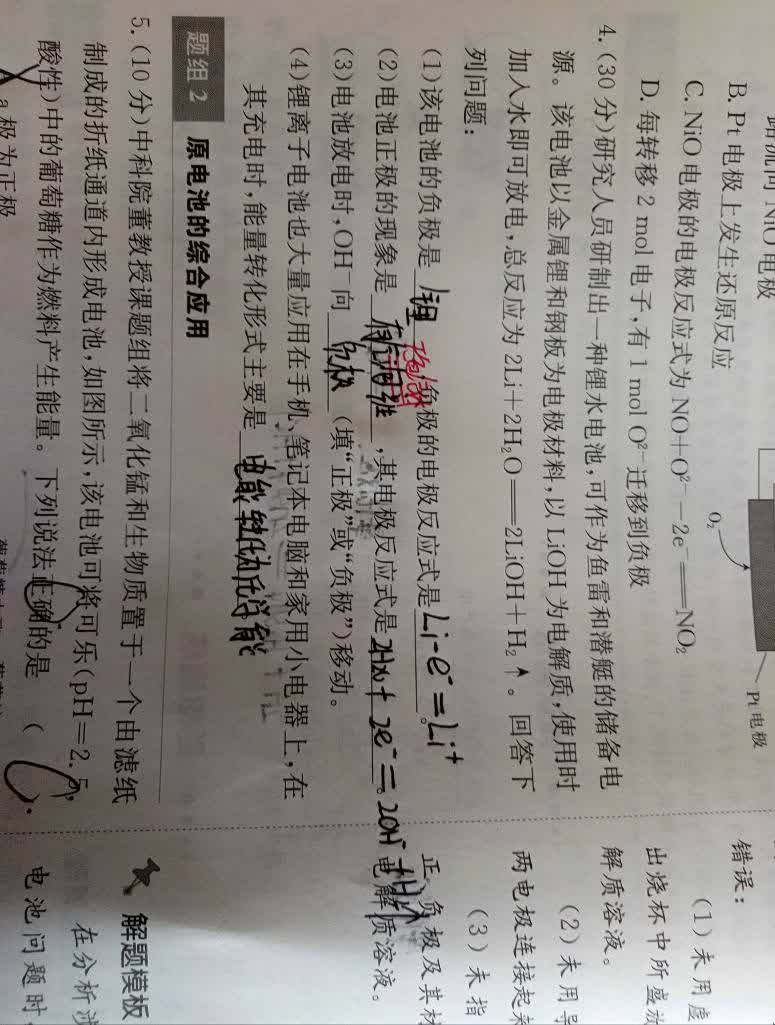 路流向 NiO 电极
B. Pt 电极上发生还原反应
C. NiO 电极的电极反应式为 NO+O²⁻−2e⁻══NO₂
D. 每转移 2 mol 电子,有 1 mol O²⁻迁移到负极
O₂
Pt 电极
4. (30 分)研究人员研制出一种锂水电池,可作为鱼雷和潜艇的储备电
源。该电池以金属锂和钢板为电极材料,以 LiOH 为电解质,使用时
加入水即可放电,总反应为 2Li+2H₂O══2LiOH+H₂↑。回答下
列问题:
(1)该电池的负极是 锂 ,负极的电极反应式是 Li-e⁻=Li⁺ 。
(2)电池正极的现象是 有气泡 ,其电极反应式是 2H₂O+2e⁻=2OH⁻+H₂↑
(3)电池放电时,OH⁻向 负极 (填“正极”或“负极”)移动。
(4)锂离子电池也大量应用在手机、笔记本电脑和家用小电器上,在
其充电时,能量转化形式主要是 电能转化为化学能
题组 2 原电池的综合应用
5. (10 分)中科院董教授课题组将二氧化锰和生物质置于一个由滤纸
制成的折纸通道内形成电池,如图所示,该电池可将可乐(pH=2.5,
酸性)中的葡萄糖作为燃料产生能量。下列说法正确的是 ( C ).
A. a 极为正极
错误:
(1)未用虚
出烧杯中所盛放
解质溶液。
(2)未用导
两电极连接起来
(3)未指
正、负极及其材
电解质溶液。
解题模板
在分析涉
电池问题时,